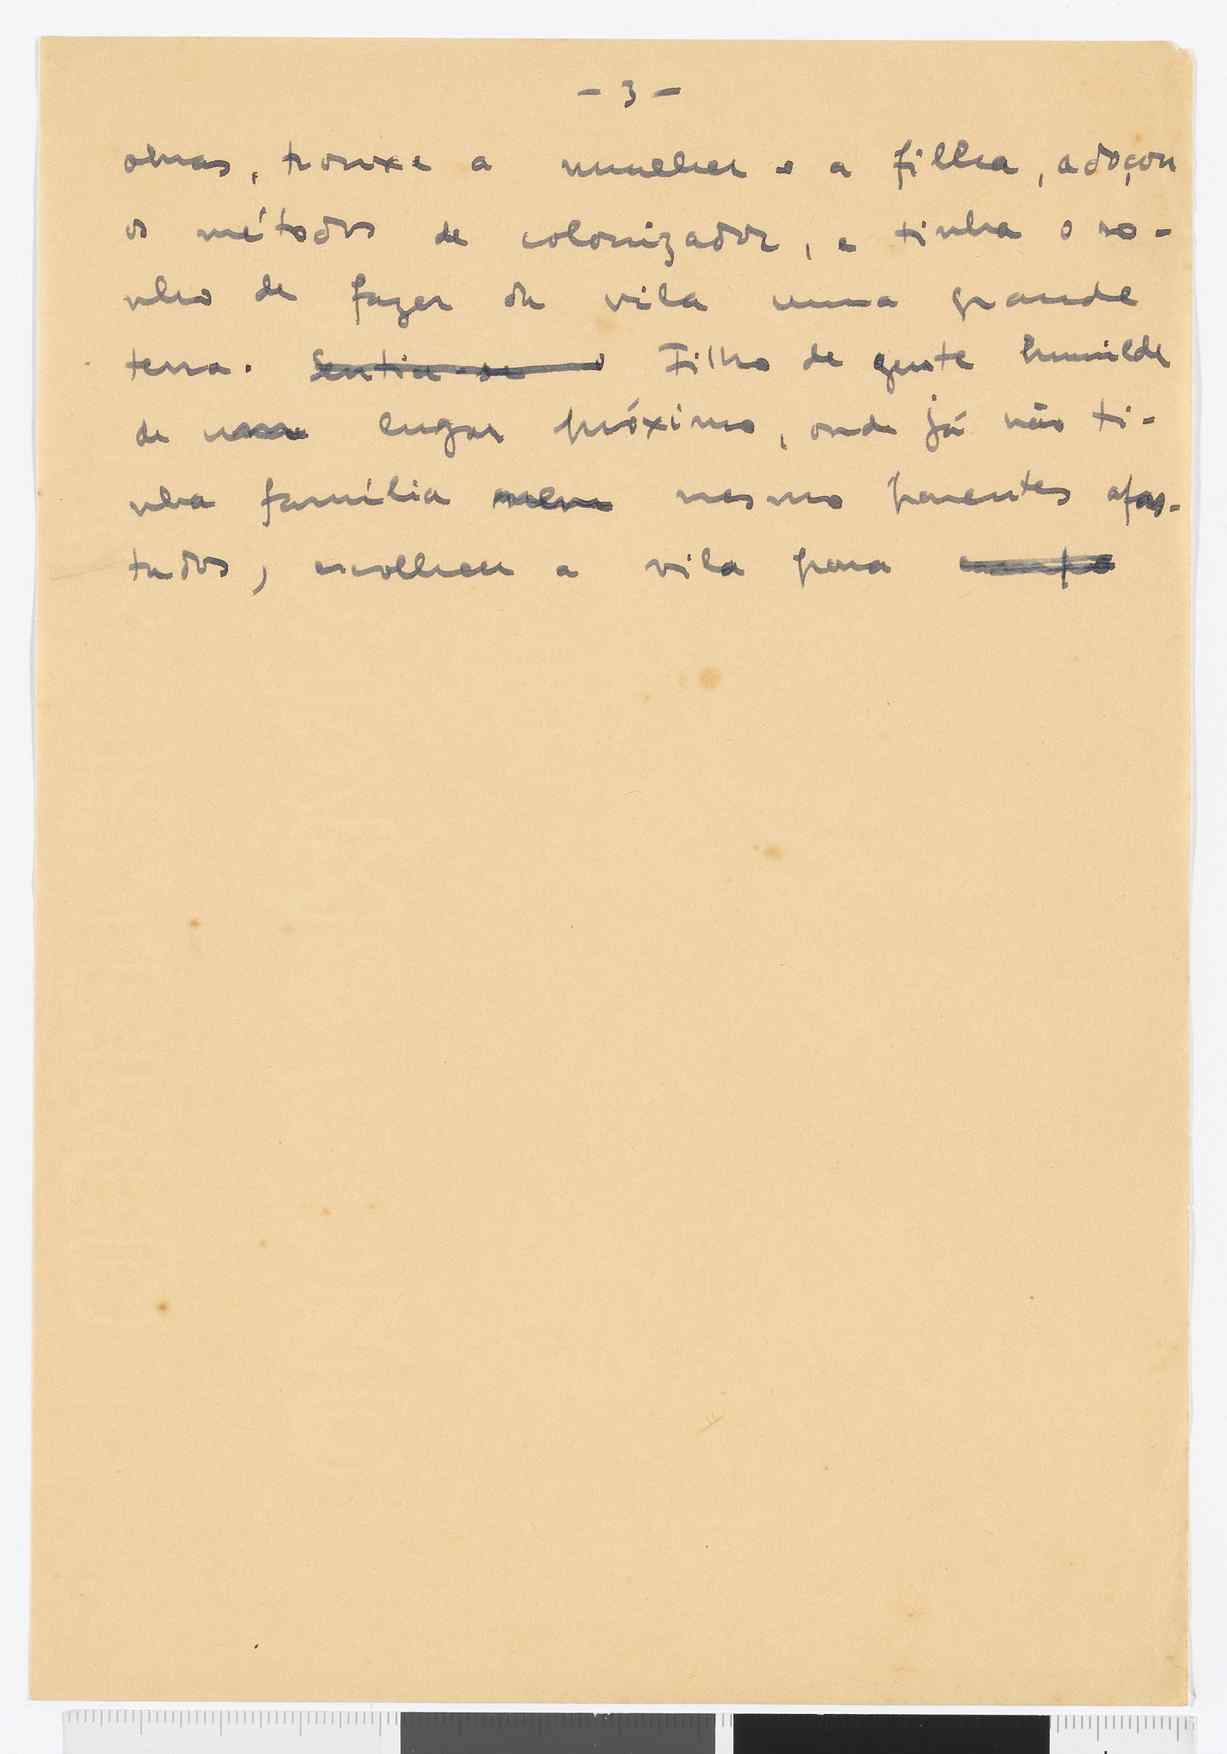 - 3 -
obras, trouxe a mulher e a filha, adoçou
os métodos de colonizador, e tinha o so-
nho de fazer da vila uma grande
terra. Sentia-se o Filho de gente humilde
de um lugar próximo, onde já não ti-
nha família nem mesmo parentes afas-
tados, escolheu a vila para